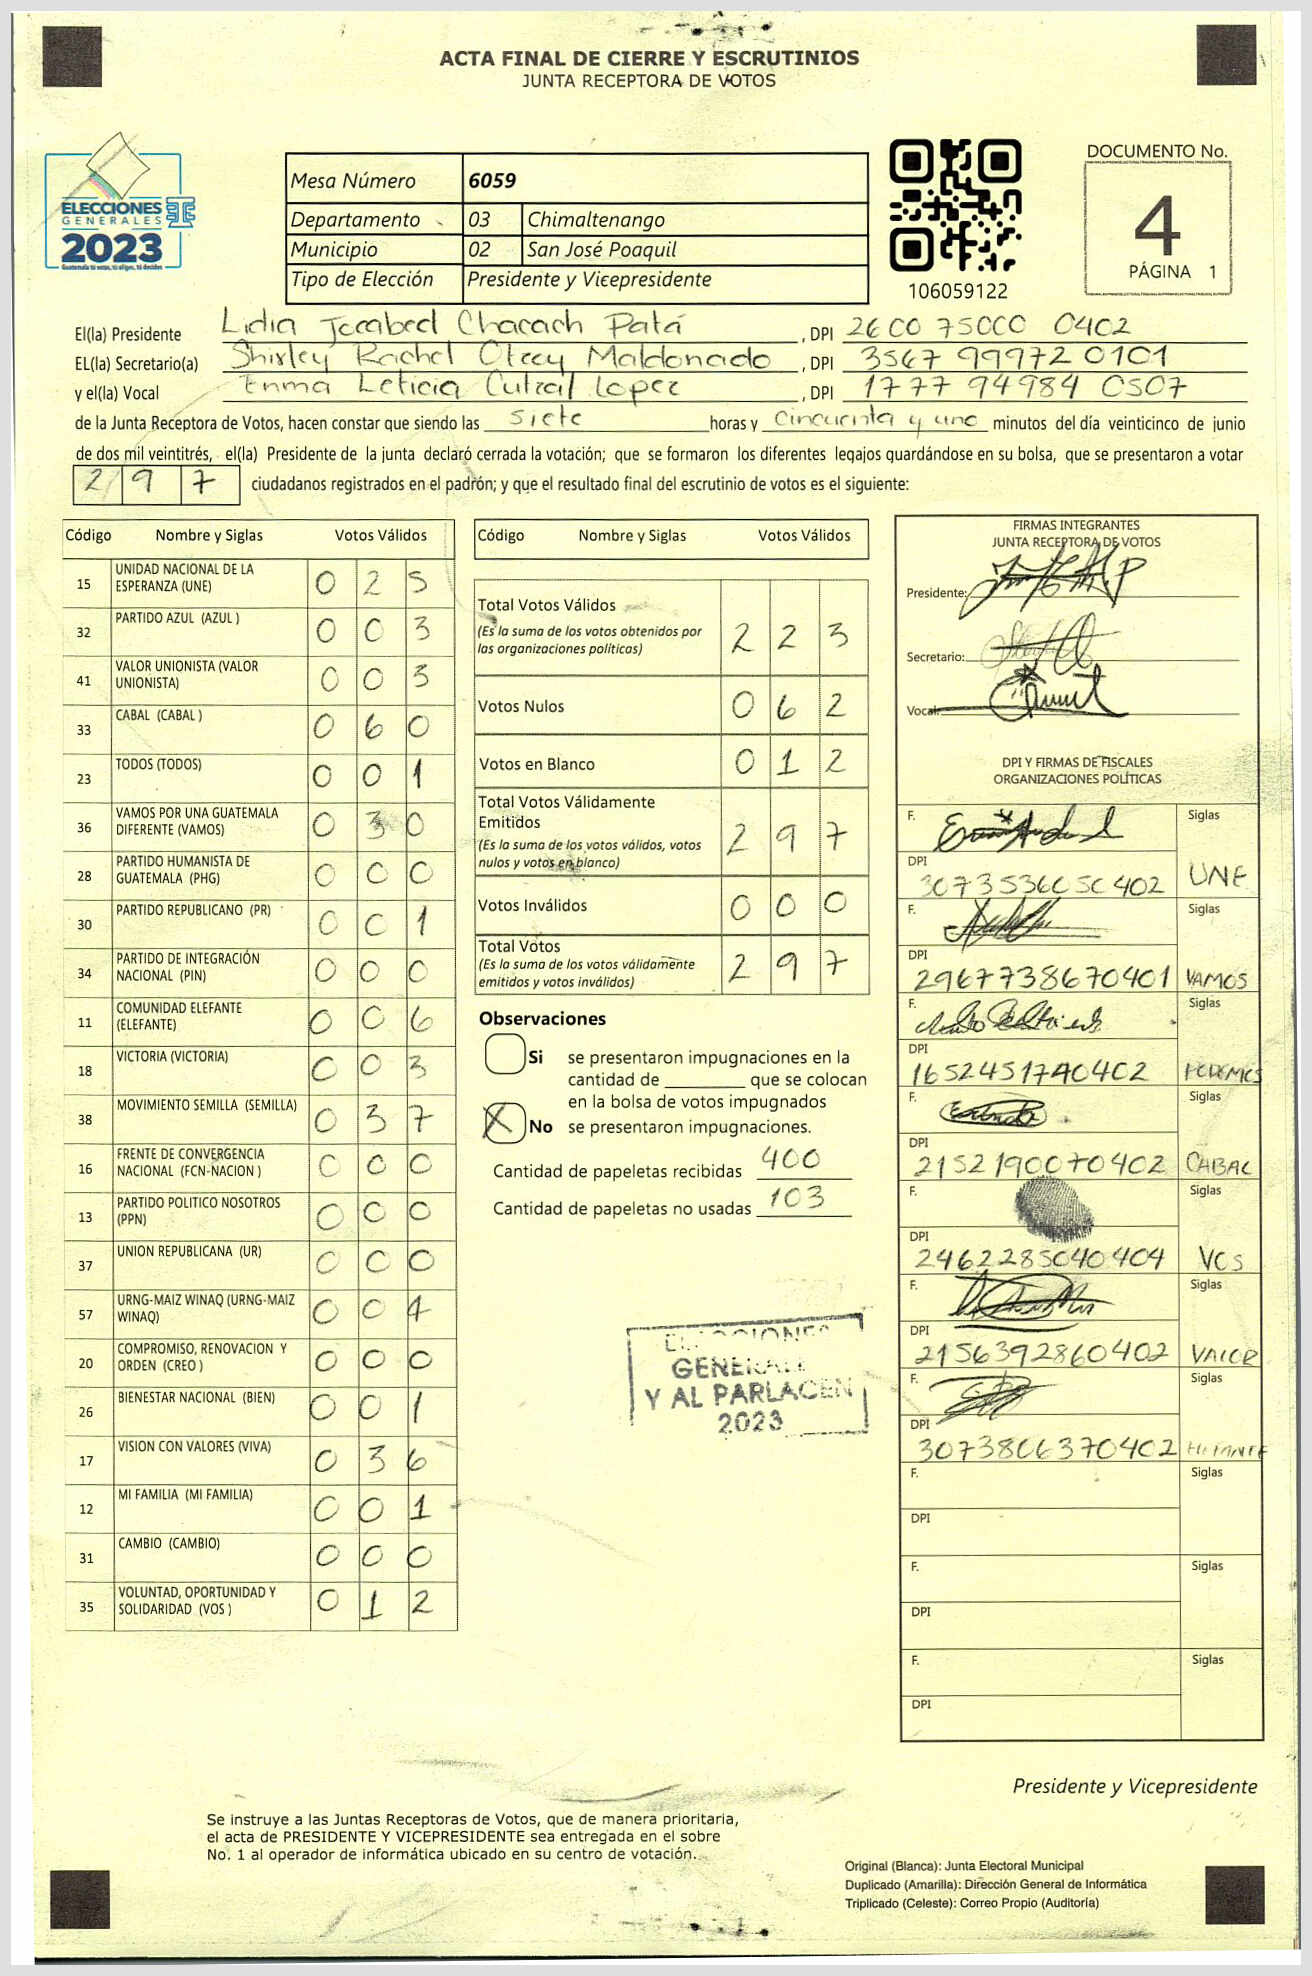 ACTA FINAL DE CIERRE Y ESCRUTINIOS
JUNTA RECEPTORA DE VOTOS
ELECCIONES
GENERALES
2023
Mesa Número 6059
Departamento 03 Chimaltenango
Municipio 02 San José Poaquil
Tipo de Elección Presidente y Vicepresidente
106059122
DOCUMENTO No.
4
PÁGINA 1
El(la) Presidente Lidia Jocabed Chacach Patá, DPI 2600 75000 0402
EL(la) Secretario(a) Shirley Rachel Otzoy Maldonado, DPI 3567 99972 0101
y el(la) Vocal Enma Leticia Cutzal Lopez, DPI 1777 94984 0507
de la Junta Receptora de Votos, hacen constar que siendo las siete horas y cincuenta y uno minutos del día veinticinco de junio
de dos mil veintitrés, el(la) Presidente de la junta declaró cerrada la votación; que se formaron los diferentes legajos guardándose en su bolsa, que se presentaron a votar
297 ciudadanos registrados en el padrón; y que el resultado final del escrutinio de votos es el siguiente:
Código Nombre y Siglas Votos Válidos
15 UNIDAD NACIONAL DE LA ESPERANZA (UNE) 0 2 5
32 PARTIDO AZUL (AZUL ) 0 0 3
41 VALOR UNIONISTA (VALOR UNIONISTA) 0 0 3
33 CABAL (CABAL ) 0 6 0
23 TODOS (TODOS) 0 0 1
36 VAMOS POR UNA GUATEMALA DIFERENTE (VAMOS) 0 3 0
28 PARTIDO HUMANISTA DE GUATEMALA (PHG) 0 0 0
30 PARTIDO REPUBLICANO (PR) 0 0 1
34 PARTIDO DE INTEGRACIÓN NACIONAL (PIN) 0 0 0
11 COMUNIDAD ELEFANTE (ELEFANTE) 0 0 6
18 VICTORIA (VICTORIA) 0 0 3
38 MOVIMIENTO SEMILLA (SEMILLA) 0 3 7
16 FRENTE DE CONVERGENCIA NACIONAL (FCN-NACION ) 0 0 0
13 PARTIDO POLITICO NOSOTROS (PPN) 0 0 0
37 UNION REPUBLICANA (UR) 0 0 0
57 URNG-MAIZ WINAQ (URNG-MAIZ WINAQ) 0 0 4
20 COMPROMISO, RENOVACION Y ORDEN (CREO ) 0 0 0
26 BIENESTAR NACIONAL (BIEN) 0 0 1
17 VISION CON VALORES (VIVA) 0 3 6
12 MI FAMILIA (MI FAMILIA) 0 0 1
31 CAMBIO (CAMBIO) 0 0 0
35 VOLUNTAD, OPORTUNIDAD Y SOLIDARIDAD (VOS ) 0 1 2
Código Nombre y Siglas Votos Válidos
Total Votos Válidos 2 2 3
(Es la suma de los votos obtenidos por
las organizaciones políticas)
Votos Nulos 0 6 2
Votos en Blanco 0 1 2
Total Votos Válidamente
Emitidos 2 9 7
(Es la suma de los votos válidos, votos
nulos y votos en blanco)
Votos Inválidos 0 0 0
Total Votos 2 9 7
(Es la suma de los votos válidamente
emitidos y votos inválidos)
Observaciones
Si se presentaron impugnaciones en la
cantidad de ________ que se colocan
en la bolsa de votos impugnados
X No se presentaron impugnaciones.
Cantidad de papeletas recibidas 400
Cantidad de papeletas no usadas 103
GENERALES
Y AL PARLACEN
2023
FIRMAS INTEGRANTES
JUNTA RECEPTORA DE VOTOS
Presidente:
Secretario:
Vocal:
DPI Y FIRMAS DE FISCALES
ORGANIZACIONES POLÍTICAS
F. Siglas
DPI 3073536050402 UNE
F. Siglas
DPI 2967738670401 VAMOS
F. Siglas
DPI 1652451740402 PODEMOS
F. Siglas
DPI 2152190070402 CABAL
F. Siglas
DPI 2462285040404 VOS
F. Siglas
DPI 2156392860402 VALOR
F. Siglas
DPI 3073806370402
F. Siglas
DPI
F. Siglas
DPI
F. Siglas
DPI
Presidente y Vicepresidente
Se instruye a las Juntas Receptoras de Votos, que de manera prioritaria,
el acta de PRESIDENTE Y VICEPRESIDENTE sea entregada en el sobre
No. 1 al operador de informática ubicado en su centro de votación.
Original (Blanca): Junta Electoral Municipal
Duplicado (Amarilla): Dirección General de Informática
Triplicado (Celeste): Correo Propio (Auditoría)